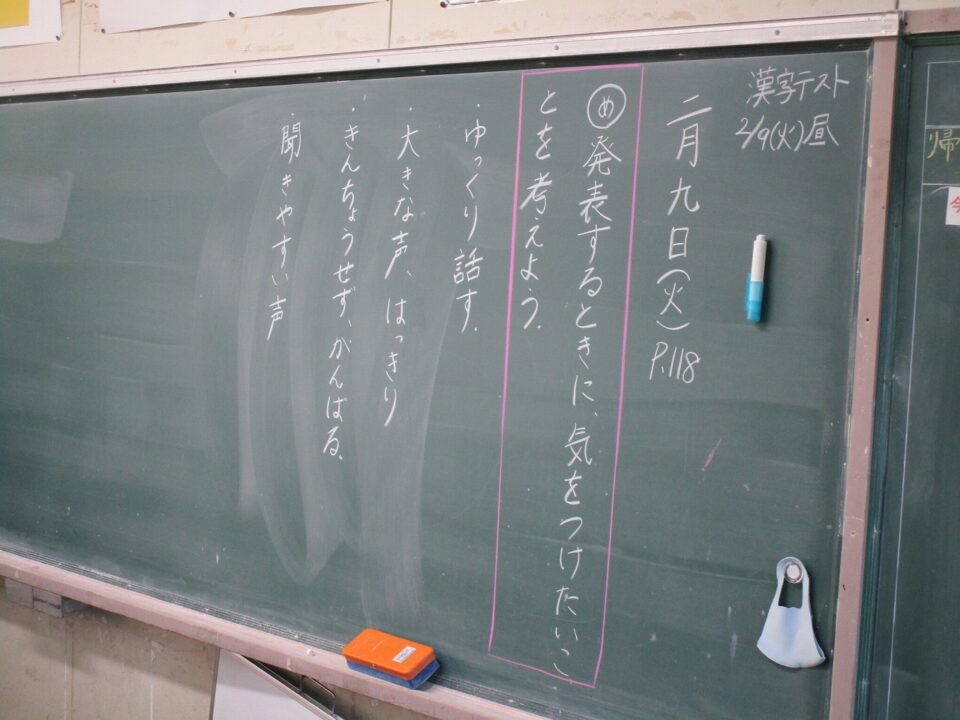 漢字テスト
2/9(火)昼
二月九日(火) P.118
め 発表するときに、気をつけたいこ
とを考えよう。
・ゆっくり話す。
・大きな声、はっきり
・きんちょうせず、がんばる。
・聞きやすい声
帰